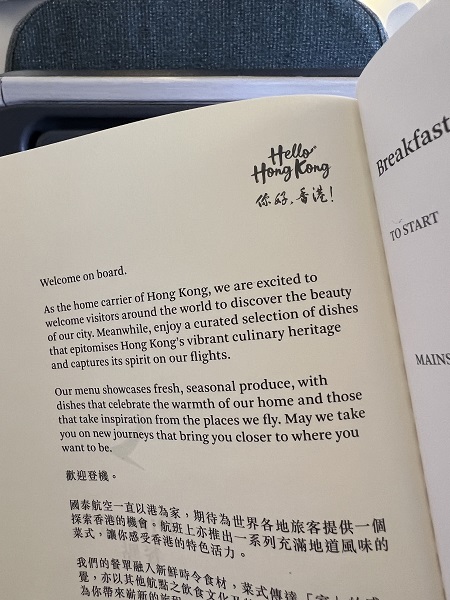 Hello
Hong Kong
你好，香港!
Welcome on board.
As the home carrier of Hong Kong, we are excited to
welcome visitors around the world to discover the beauty
of our city. Meanwhile, enjoy a curated selection of dishes
that epitomises Hong Kong's vibrant culinary heritage
and captures its spirit on our flights.
Our menu showcases fresh, seasonal produce, with
dishes that celebrate the warmth of our home and those
that take inspiration from the places we fly. May we take
you on new journeys that bring you closer to where you
want to be.
歡迎登機。
國泰航空一直以港為家，期待為世界各地旅客提供一個
探索香港的機會。航班上亦推出一系列充滿地道風味的
菜式，讓你感受香港的特色活力。
我們的餐單融入新鮮時令食材，菜式傳達「家」的感
覺，亦以其他航點之飲食文化
為你帶來嶄新的旅程
Breakfast
TO START
MAINS